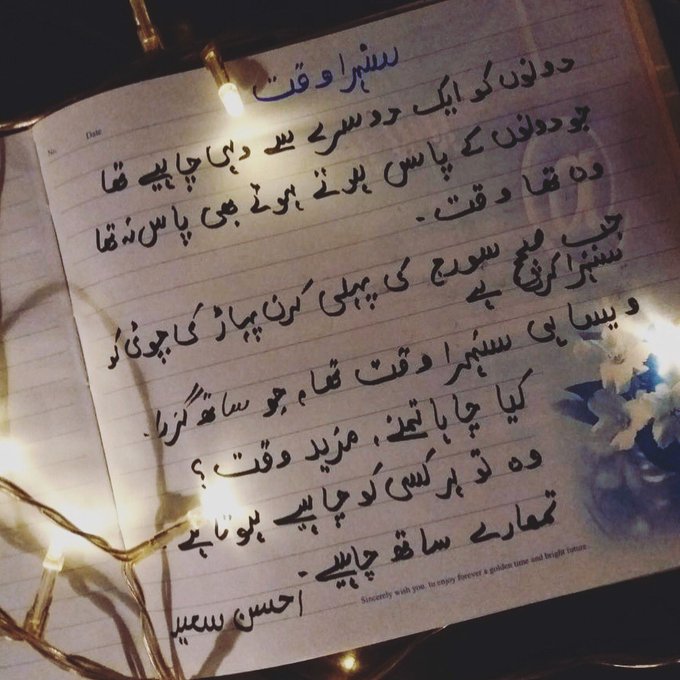 سنہرا وقت
No.
Date
دونوں کو ایک دوسرے سے وہی چاہیے تھا
جو دونوں کے پاس ہوتے ہوئے بھی پاس نہ تھا
وہ تھا وقت۔
جب صبح سورج کی پہلی کرن پہاڑ کی چوٹی کو
سنہرا کرتی ہے
ویسا ہی سنہرا وقت تھا، جو ساتھ گزرا۔
کیا چاہا تمنے، مزید وقت؟
وہ تو ہر کسی کو چاہیے ہوتا ہے۔
تمھارے ساتھ چاہیے۔
احسن سعید
Sincerely wish you, to enjoy forever a golden time and bright future